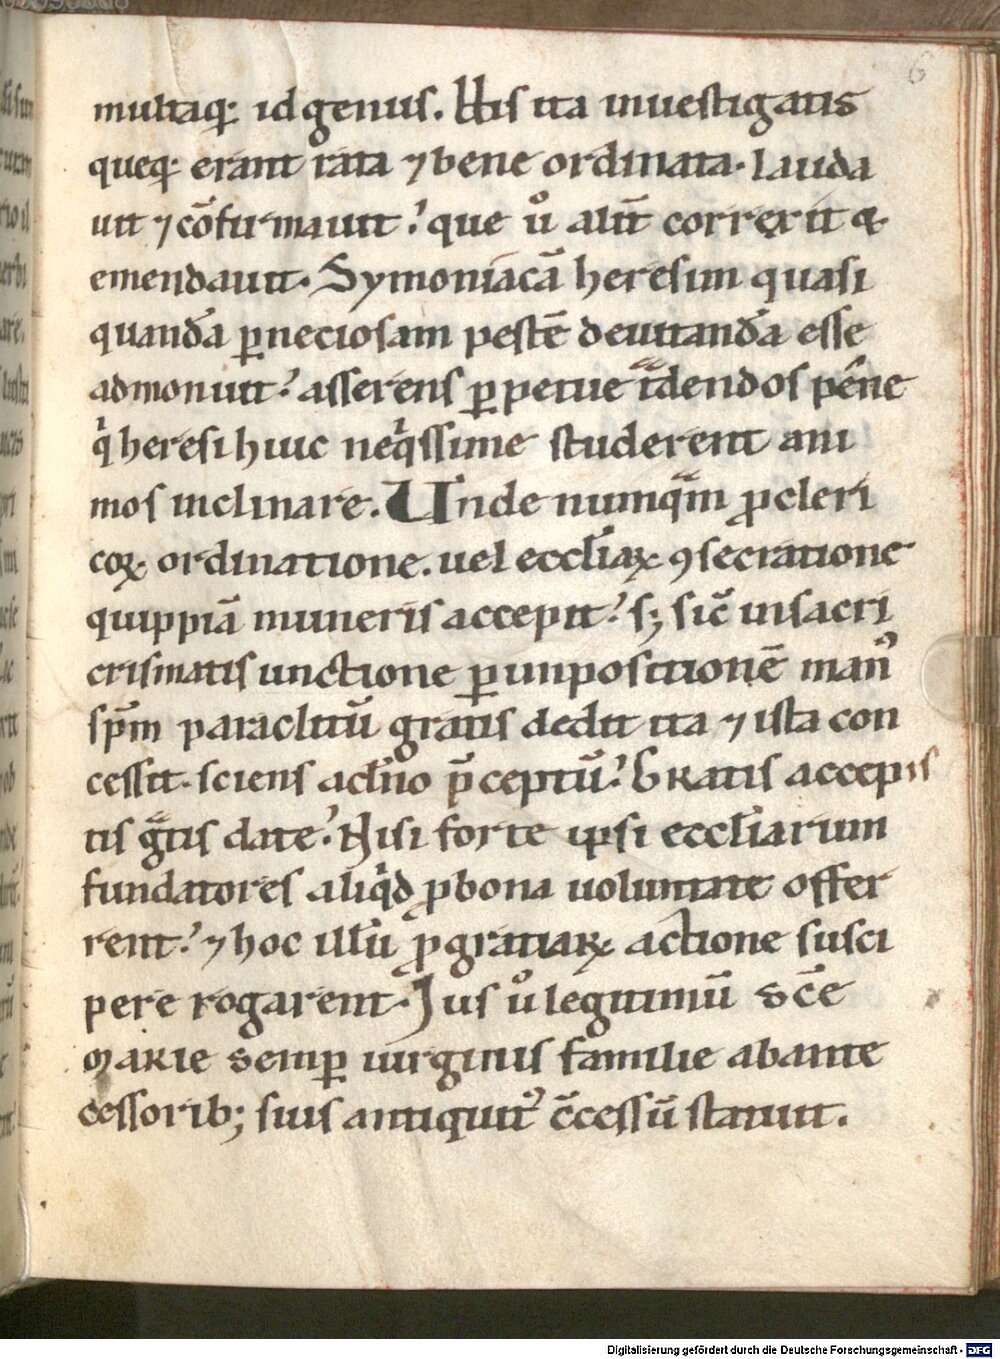 6
multaq; id genus. His ita inuestigatis
queq; erant rata ⁊ bene ordinata. lauda
uit ⁊ cōfirmauit: que uͦ alit̄ correxit &
emendauit. Symoniacā heresim quasi
quandā ꝑneciosam pestē deuitandā esse
admonuit: asserens ꝑpetue tͣdendos pēne
qͥ heresi huic neqͥssime studerent ani
mos inclinare. Unde numqͣm ꝓ cleri
coꝝ ordinatione. uel eccl̄iaꝝ ꝯsecratione
quippiā muneris accepit: s; sic̄ in sacri
crismatis unctione ꝑ impositionē manꝰ
sp̄m paraclitū gratis dedit ita ⁊ ista con
cessit. sciens a dn̄o p̄ceptū: GRatis accepis
tis gͣtis date: Nisi forte ipsi eccl̄iarum
fundatores aliqͥd ꝓ bona uoluntate offer
rent: ⁊ hoc illū ꝓ gratiaꝝ actione susci
pere rogarent. Jus uͦ legitimū sc̄e
MARIE semꝑ uirginis familie ab ante
cessorib; suis antiquitꝰ c̄cessū statuit.
Digitalisierung gefördert durch die Deutsche Forschungsgemeinschaft - DFG